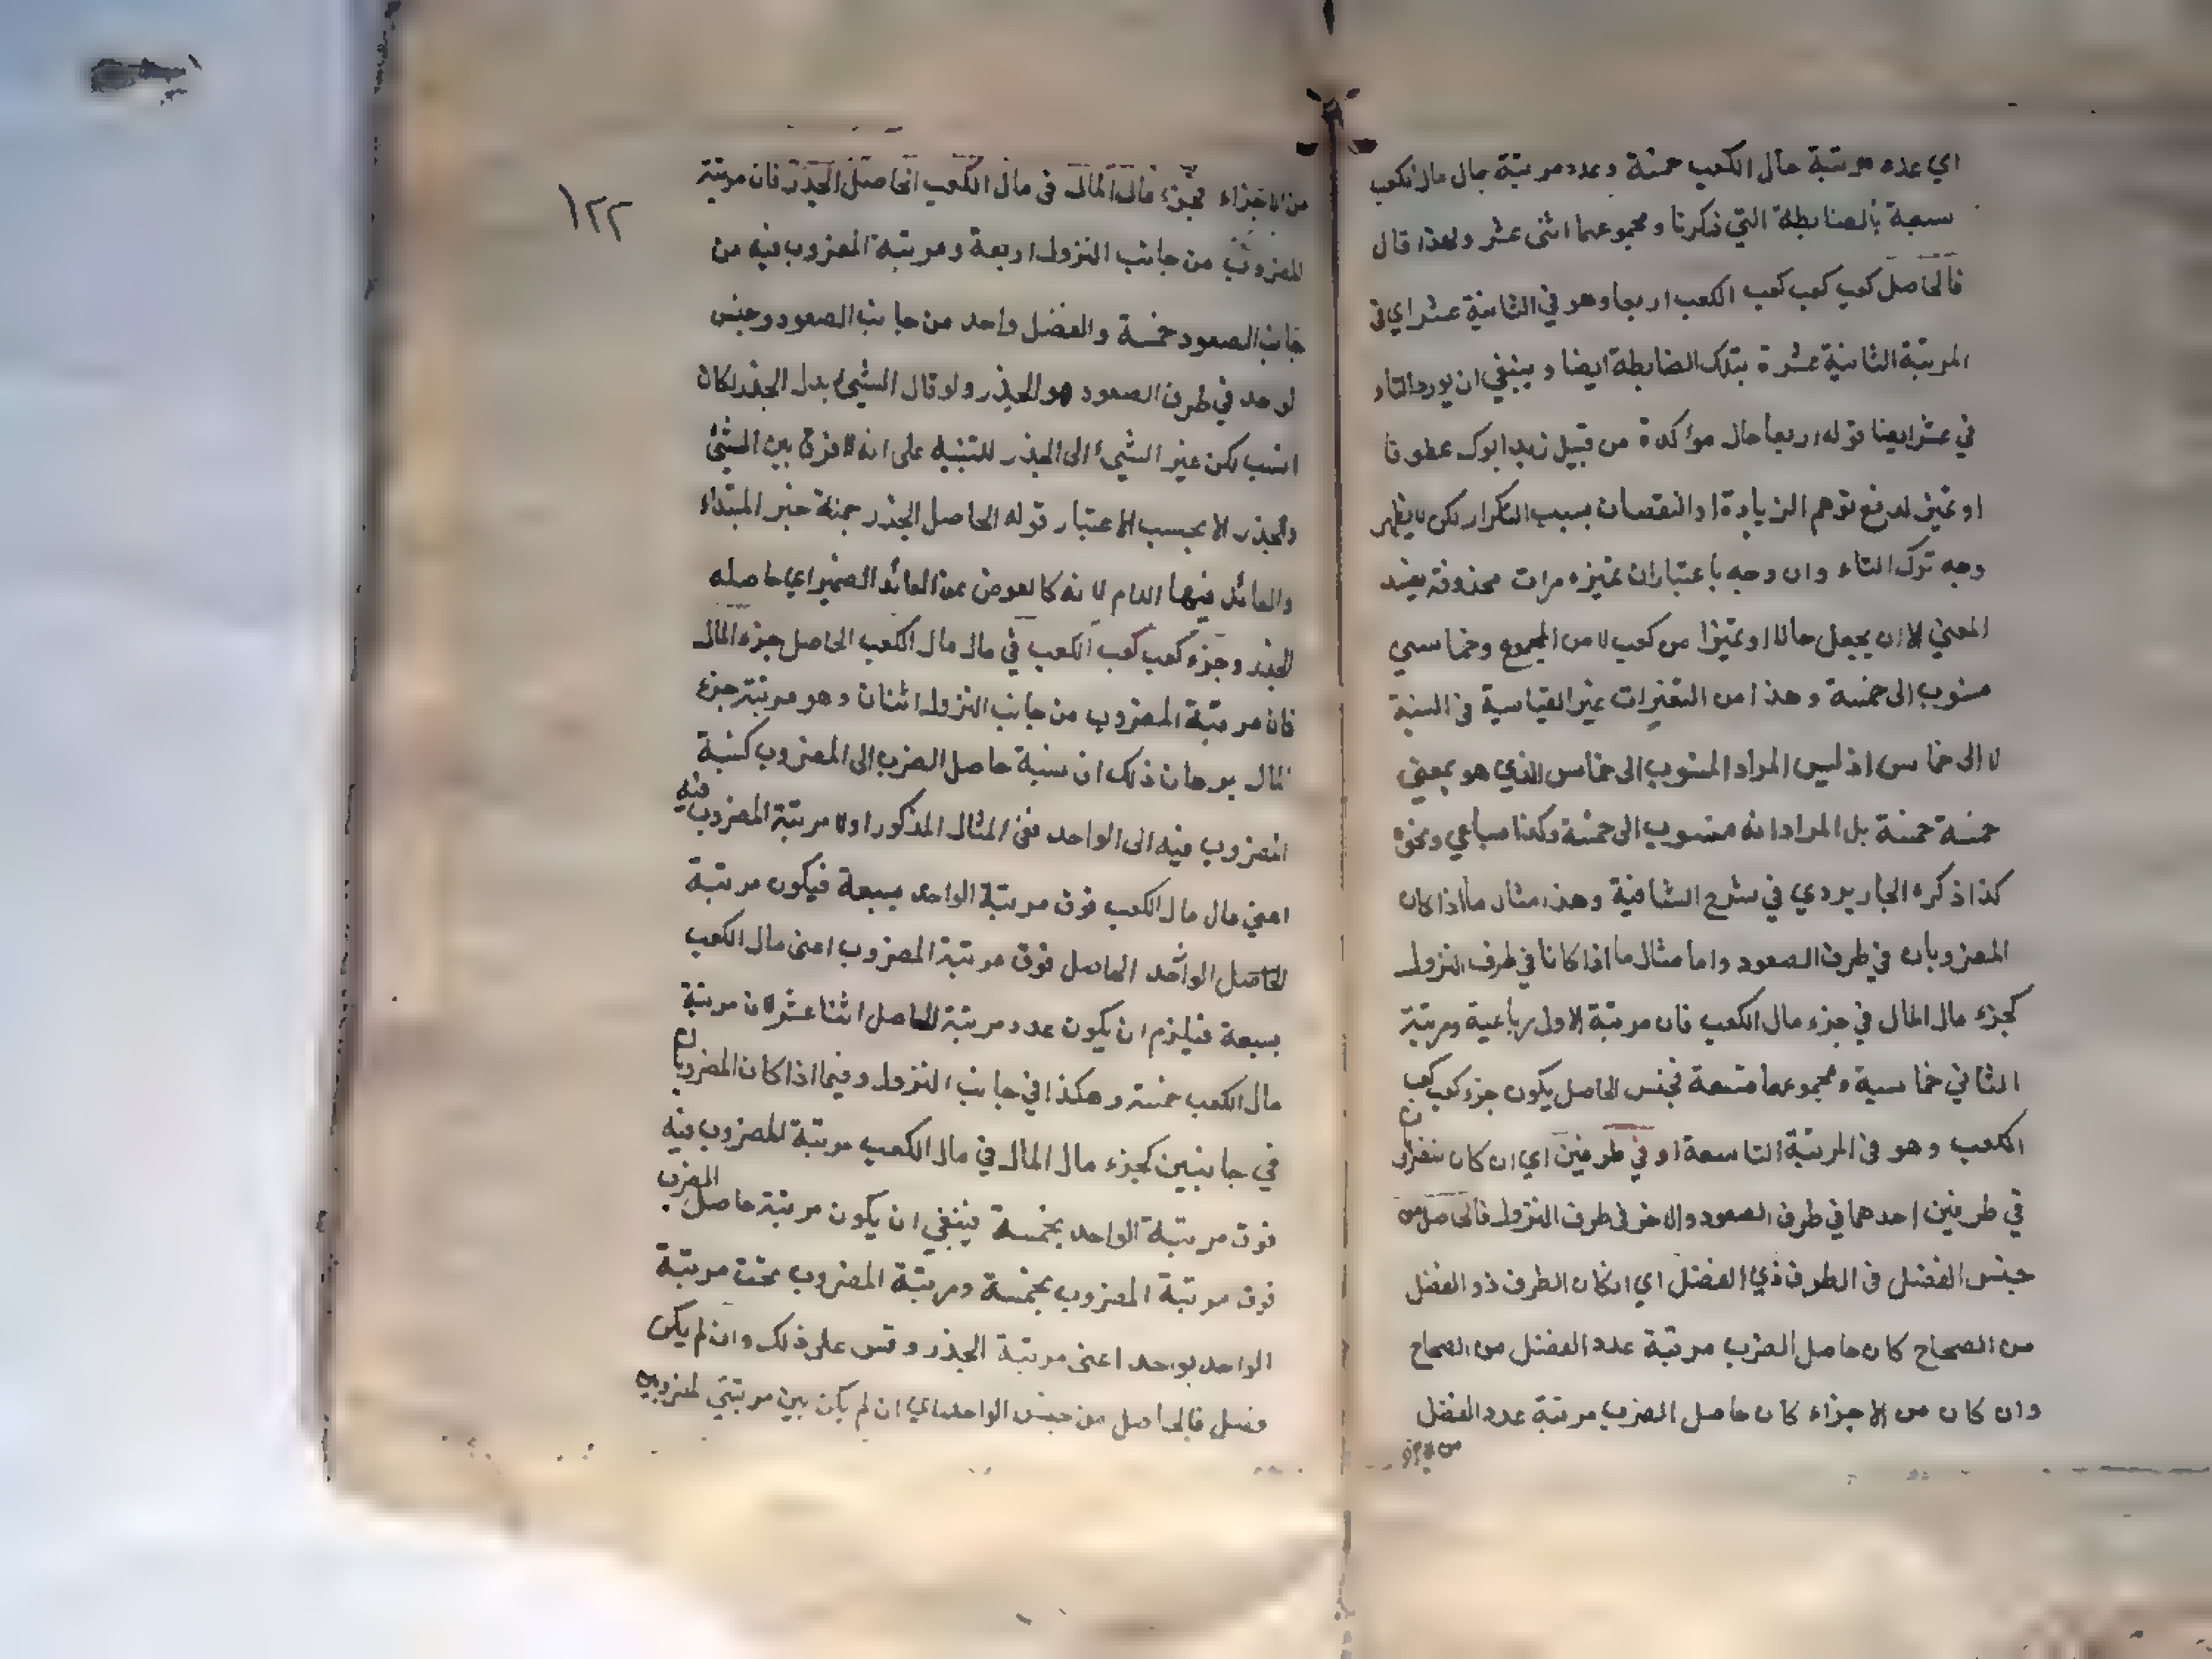 اي عدد مرتبة مال الكعب خمسة وعدد مرتبة مال مال الكعب
سبعة بالضابطة التي ذكرنا ومجموعهما اثنى عشر ولهذا قال
فالحاصل كعب كعب كعب الكعب اربعا وهو في الثانية عشر اي في
المرتبة الثانية عشرة بتلك الضابطة ايضا وينبغي ان يورد التاء
في عشر ايضا قوله اربعا حال مؤكدة من قبيل زيد ابوك عطوفا
او تميز لدفع توهم الزيادة او النقصان بسبب التكرار لكن لا يظهر
وجه ترك التاء وان وجه باعتبار ان تميزه مرات محذوفة يفسد
المعنى الا ان يجعل حالا او تميزا من كعب لا من المجموع وخماسي
منسوب الى خمسة وهذا من التغيرات غير القياسية في النسبة
لا الى خماس اذ ليس المراد المنسوب الى خماس الذي هو بمعنى
خمسة خمسة بل المراد انه منسوب الى خمسة وكذا سباعي ونحوه
كذا ذكره الجاربردي في شرح الشافية وهذا مثال ما اذا كان
المضروبان في طرف الصعود واما مثال ما اذا كانا في طرف النزول
كجزء مال المال في جزء مال الكعب فان مرتبة الاول رباعية ومرتبة
الثاني خماسية ومجموعهما تسعة فجنس الحاصل يكون جزء كعب كعب
الكعب وهو في المرتبة التاسعة او في طرفين اي ان كان المضروبان
في طرفين احدهما في طرف الصعود والاخر في طرف النزول فالحاصل من
جنس الفضل في الطرف ذي الفضل اي ان كان الطرف ذو الفضل
من الصحاح كان حاصل الضرب مرتبة عدد الفضل من الصحاح
وان كان من الاجزاء كان حاصل الضرب مرتبة عدد الفضل
١٢٢
من الاجزاء فجزء مال المال في مال الكعب الحاصل الجذر فان مرتبة
المضروب من جانب النزول اربعة ومرتبة المضروب فيه من
جانب الصعود خمسة والفضل واحد من جانب الصعود وجنس
لوحد في طرف الصعود هو الجذر ولو قال الشيء بدل الجذر لكان
انسب لكن غير الشيء الى الجذر للتنبيه على انه لا فرق بين الشيء
والجذر الا بحسب الاعتبار قوله الحاصل الجذر جملة خبر المبتداء
والعائد فيها اللام لانه كالعوض عن العائد الضمير اي حاصله
الجذر وجزء كعب كعب الكعب في مال مال الكعب الحاصل جزء المال
فان مرتبة المضروب من جانب النزول اثنان وهو مرتبة جزء
المال برهان ذلك ان نسبة حاصل الضرب الى المضروب كنسبة
المضروب فيه الى الواحد ففي المثال المذكور اولا مرتبة المضروب فيه
اعني مال مال الكعب فوق مرتبة الواحد بسبعة فيكون مرتبة
الحاصل الواحد الحاصل فوق مرتبة المضروب اعنى مال الكعب
بسبعة فيلزم ان يكون عدد مرتبة الحاصل اثنا عشر لان مرتبة
مال الكعب خمسة وهكذا في جانب النزول وفيما اذا كان المضروبان
في جانبين كجزء مال المال في مال الكعب مرتبة المضروب فيه
فوق مرتبة الواحد بخمسة فينبغي ان يكون مرتبة حاصل الضرب
فوق مرتبة المضروب بخمسة ومرتبة المضروب تحت مرتبة
الواحد بواحد اعنى مرتبة الجذر وقس على ذلك وان لم يكن
فضل فالحاصل من جنس الواحد اي ان لم يكن بين مرتبتي المضروبين